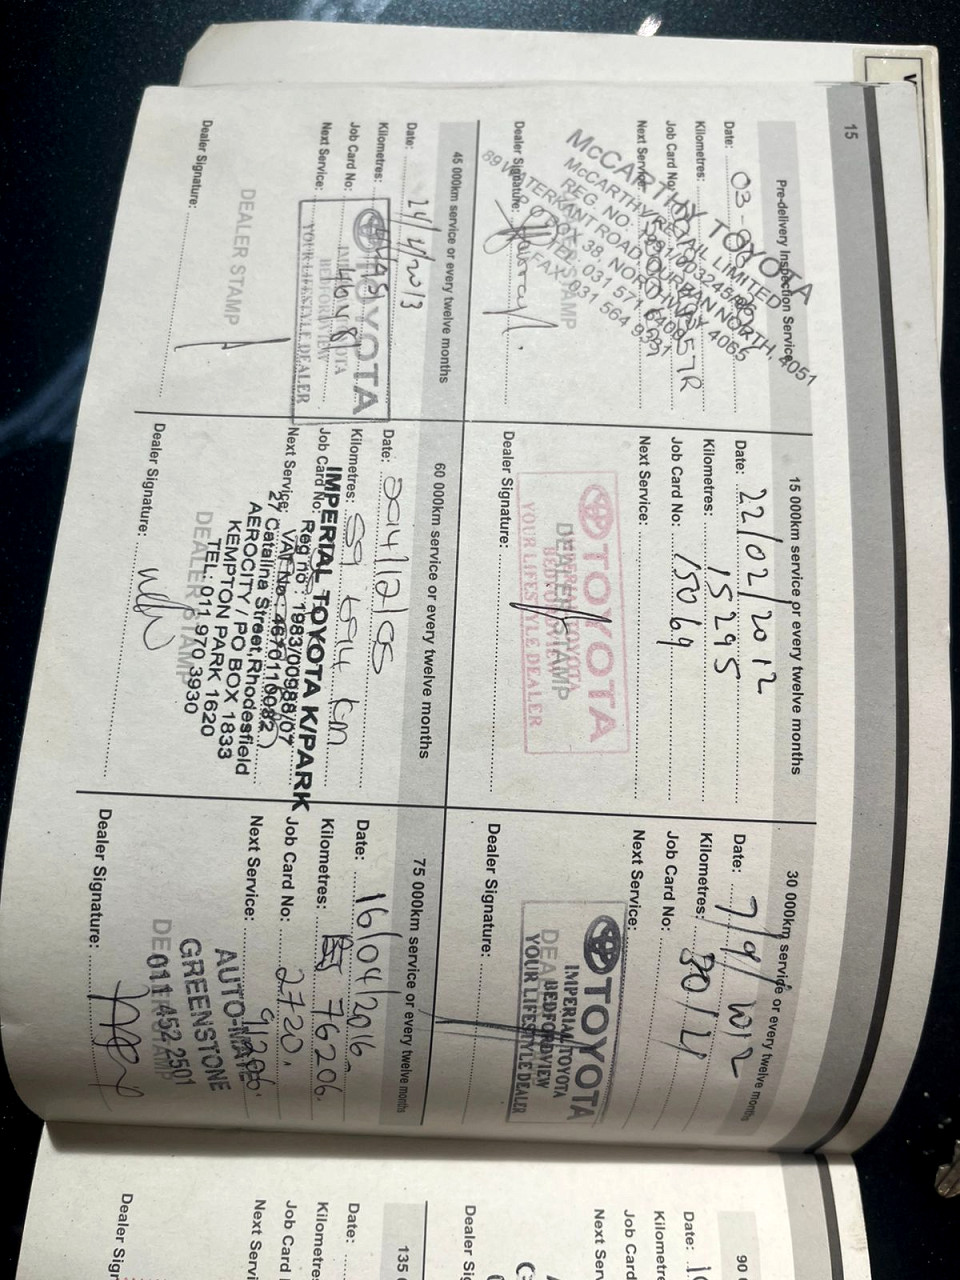 15
Pre-delivery Inspection Service
Date:
Kilometres:
Job Card No:
Next Service:
McCARTHY TOYOTA
McCARTHY RETAIL LIMITED
89 WATERKANT ROAD, DURBAN NORTH, 4051
Dealer Signature:
15 000km service or every twelve months
Date: 22/02/2012
Kilometres: 15295
Job Card No: 15069
Next Service:
TOYOTA
YOUR LIFESTYLE DEALER
DEALER STAMP
Dealer Signature:
30 000km service or every twelve months
Date: 7/9/2012
Kilometres:
Job Card No:
Next Service:
TOYOTA
IMPERIAL TOYOTA
BEDFORDVIEW
YOUR LIFESTYLE DEALER
Dealer Signature:
45 000km service or every twelve months
Date: 24/4/2013
Kilometres:
Job Card No:
Next Service:
TOYOTA
BEDFORDVIEW
YOUR LIFESTYLE DEALER
DEALER STAMP
Dealer Signature:
60 000km service or every twelve months
Date: 2014/12/05
Kilometres: km
Job Card No:
Next Service:
IMPERIAL TOYOTA K/PARK
Reg no: 1983/00988/07
VAT No: 4670110082
27 Catalina Street, Rhodesfield
AEROCITY / PO BOX 1833
KEMPTON PARK 1620
TEL: 011 970 3930
DEALER STAMP
Dealer Signature:
75 000km service or every twelve months
Date: 16/04/2016
Kilometres: 76206
Job Card No: 2720
Next Service: 91206
AUTO-MATE
GREENSTONE
011 452 2501
Dealer Signature:
90
Date:
Kilometre
Job Card
Next Serv
Dealer Si
135
Date:
Kilometre
Job Card
Next Servi
Dealer Sign